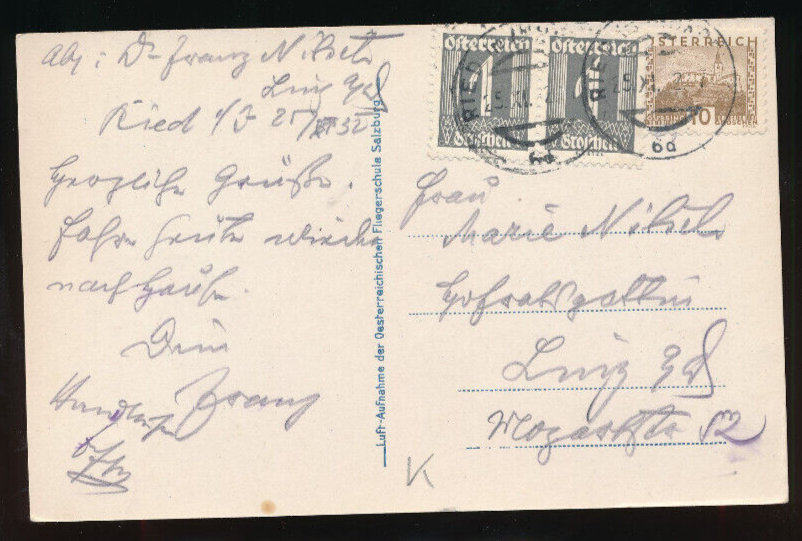 Abs: Dr Franz Nikel
Linz a/d
Ried i/I 25/XI 32
Herzliche Grüße.
Fahre heute wieder
nach Hause.
Dein
Franz
Luft-Aufnahme der Oesterreichischen Fliegerschule Salzburg
Österreich
1
Groschen
Österreich
1
Groschen
ÖSTERREICH
10
RIED
25.XI.
6a
Frau
Marie
Hofratsgattin
Linz a/d
Mozartstr 52
K